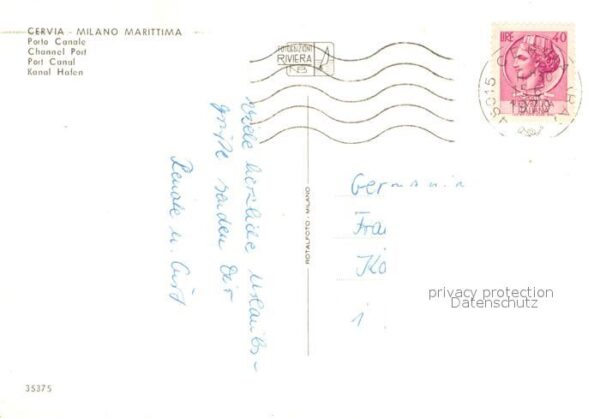 CERVIA - MILANO MARITTIMA
Porto Canale
Channel Port
Port Canal
Kanal Hafen
RIVIERA
LIRE 40
1970
Viele herzliche Urlaubs-
grüße senden Dir
Renate u. Curt
ROTALFOTO - MILANO
Germania
Frau
Ko
privacy protection
Datenschutz
35375